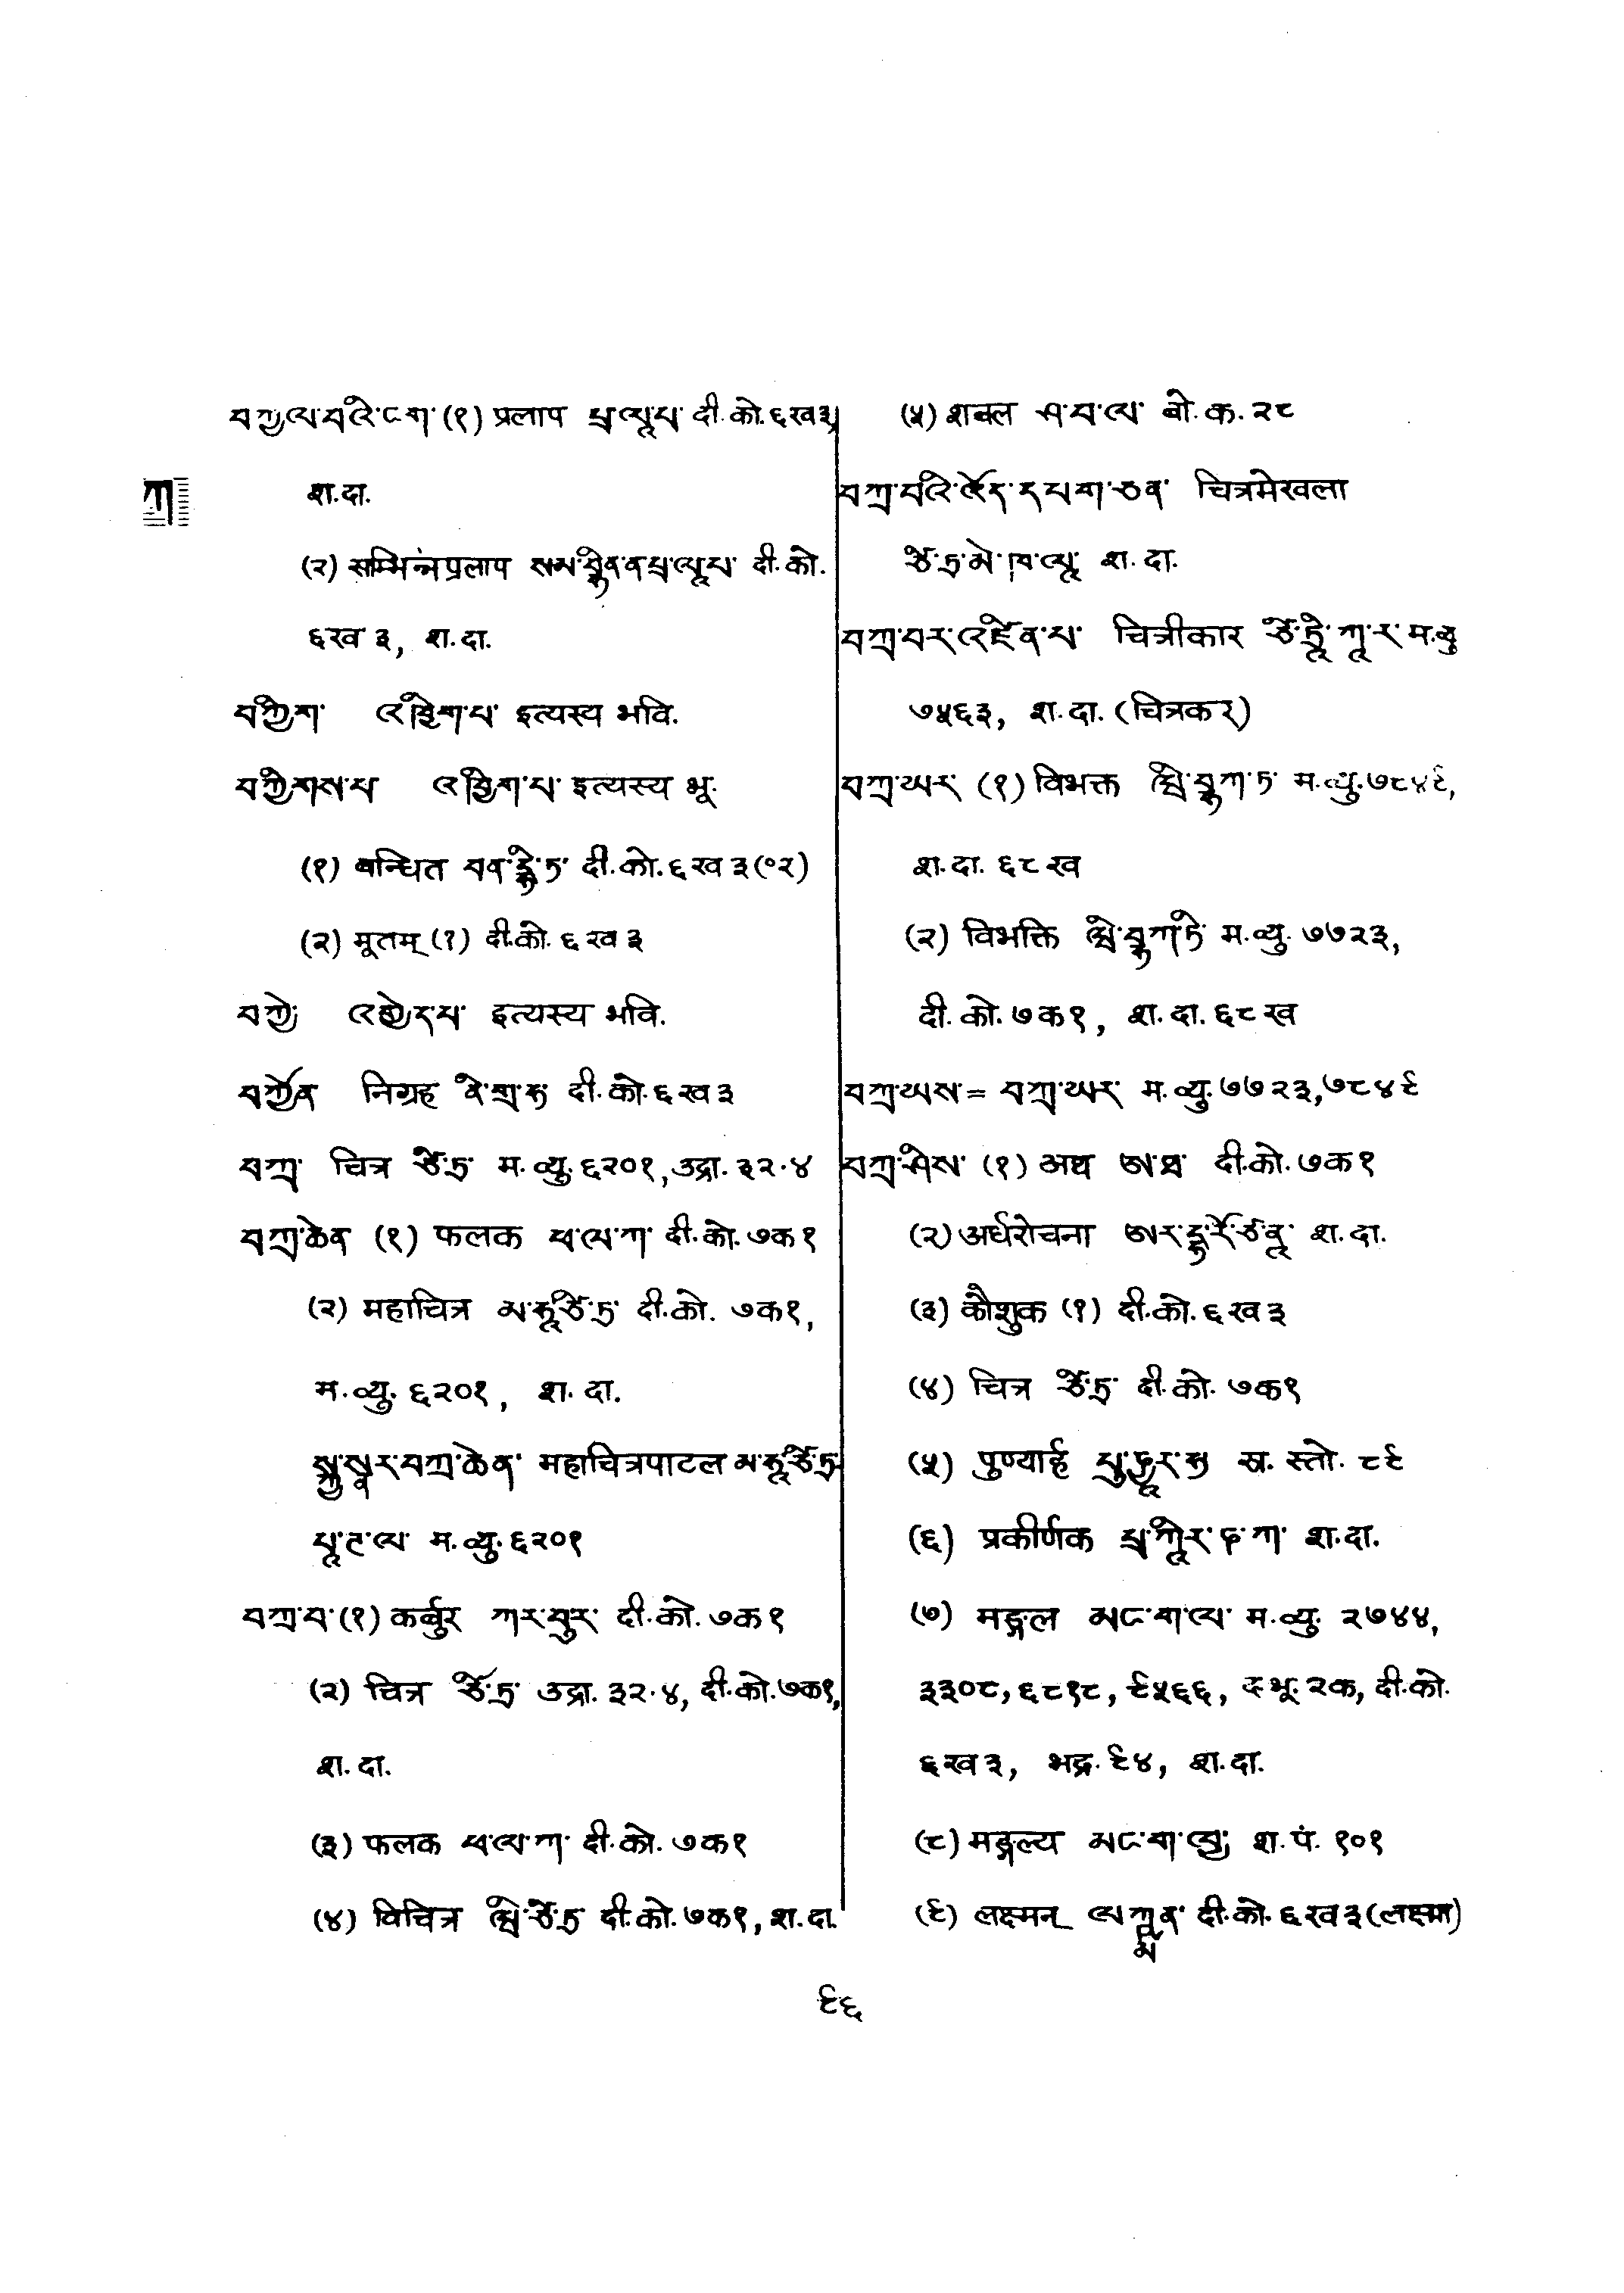 བཀྱལ་བའི་ངག་ (१) प्रलाप པྲ་ལཱ་པ་ दी.को.६ख३,
श.दा.
ཀ
(२) सम्भिन्नप्रलाप སམ་བྷིན་ན་པྲ་ལཱ་པ་ दी.को.
६ख ३, श.दा.
བཀྱིག་ འཁྱིག་པ་ इत्यस्य भवि.
བཀྱིགས་པ འཁྱིག་པ་ इत्यस्य भू.
(१) बन्धित བན་དྷི་ཏ་ दी.को.६ख३(०२)
(२) मूतम् (१) दी.को.६ख३
བཀྱེ་ འགྱེད་པ་ इत्यस्य भवि.
བཀྱོན निग्रह ནི་གྲ་ཧ་ दी.को.६ख३
བཀྲ་ चित्र ཙི་ཏྲ་ म.व्यु.६२०१,उद्रा.३२.४
བཀྲ་ཆེན (१) फलक ཕ་ལ་ཀ་ दी.को.७क१
(२) महाचित्र མ་ཧཱ་ཙི་ཏྲ་ दी.को. ७क१,
म.व्यु. ६२०१, श. दा.
སྐུ་སྣར་བཀྲ་ཆེན་ महाचित्रपाटल མ་ཧཱ་ཙི་ཏྲ་
པཱ་ཊ་ལ་ म.व्यु.६२०१
བཀྲ་བ་ (१) कर्बुर ཀར་བུར་ दी.को.७क१
(२) चित्र ཙི་ཏྲ་ उद्रा. ३२.४, दी.को.७क१,
श.दा.
(३) फलक ཕ་ལ་ཀ་ दी.को. ७क१
(४) विचित्र ཝི་ཙི་ཏྲ दी.को.७क१, श.दा.
(५) शबल ཤ་བ་ལ་ बो.क.२८
བཀྲ་བའི་འོད་དཔག་ཅན་ चित्रमेखला
ཙི་ཏྲ་མེ་ཁ་ལཱ་ श.दा.
བཀྲ་བར་འཛིན་པ་ चित्रीकार ཙི་ཏྲཱི་ཀཱ་ར་ म.व्यु
७५६३, श.दा.(चित्रकर)
བཀྲ་ཡར་ (१) विभक्त ཝི་བྷཀ་ཏ་ म.व्यु.७८४९,
श.दा. ६८ख
(२) विभक्ति ཝི་བྷཀ་ཏི་ म.व्यु. ७७२३,
दी.को.७क१, श.दा.६८ख
བཀྲ་ཡས་ = བཀྲ་ཡར་ म.व्यु.७७२३,७८४९
བཀྲ་ཤིས་ (१) अघ ཨ་གྷ दी.को.७क१
(२) अर्धरोचना ཨར་དྷ་རོ་ཙ་ནཱ་ श.दा.
(३) कौशुक (१) दी.को.६ख३
(४) चित्र ཙི་ཏྲ་ दी.को. ७क१
(५) पुण्यार्ह པུ་ཎྱཱར་ཧ स्र. स्तो. ८९
(६) प्रकीर्णक པྲ་ཀཱིར་ཎ་ཀ་ श.दा.
(७) मङ्गल མང་ག་ལ་ म.व्यु. २७४४,
३३०८,६८१८, ९५६६, दभू.२क, दी.को.
६ख३, भद्र.९४, श.दा.
(८) मङ्गल्य མང་ག་ལྱ་ श.पं. १०१
(९) लक्ष्मन् ལ་ཀྵྨན་ दी.को.६ख३(लक्ष्मा)
९६